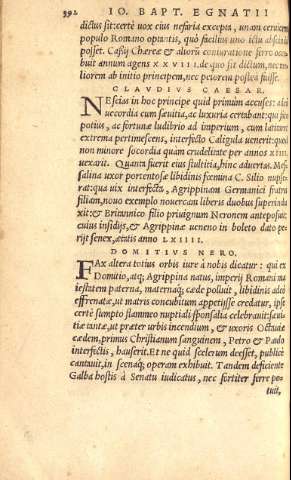 392 IO. BAPT. EGNATII
dictus sit: certè uox eius nefaria excepta, unam ceruicem
populo Romano optantis, quò facilius uno ictu abscindi
posset. Casij Chereæ & aliorũ coniuratione ferro occu
buit annum agens XXVIII. de quo sit dictum, nec me
liorem ab initio principem, nec peiorem postea fuisse.
CLAVDIVS CAESAR.
NEscias in hoc principe quid primùm accuses: adeò
uecordia cum sæuitia, ac luxuria certabant: qui
potius, ac fortunæ ludibrio ad imperium, cum latitans
extrema pertimescens, interfecto Caligula uenerit: quod
non minore socordia quàm crudelitate per annos XIIII.
uexarit. Quanta fuerit eius stultitia, hinc aduertas. Mes
salina uxor portentosæ libidinis fœmina C. Silio nupse
rat: qua uix interfecta, Agrippinam Germanici fratris
filiam, nouo exemplo nouercam liberis duobus superindu
xit: & Britannico filio priuignum Neronem anteposuit:
cuius insidijs, & Agrippinæ ueneno in boleto dato pe-
rijt senex, ætatis anno LXIIII.
DOMITIVS NERO.
FAx altera totius orbis iure à nobis dicatur: qui ex
Domitio, atq; Agrippina natus, imperij Romani ma
iestatem paterna, maternaq; cæde polluit, libidinis adeò
effrenatæ, ut matris concubitum appetisse credatur, ipse
certè sumpto flammeo nuptiali sponsalia celebrauit: sæui
tiæ tantæ, ut præter urbis incendium, & uxoris Octauiæ
cædem, primus Christianum sanguinem, Petro & Paulo
interfectis, hauserit. Et ne quid scelerum deesset, publicè
cantauit, in scenaq; operam exhibuit. Tandem deficiente
Galba hostis à Senatu iudicatus, nec fortiter ferre po-
tuit,